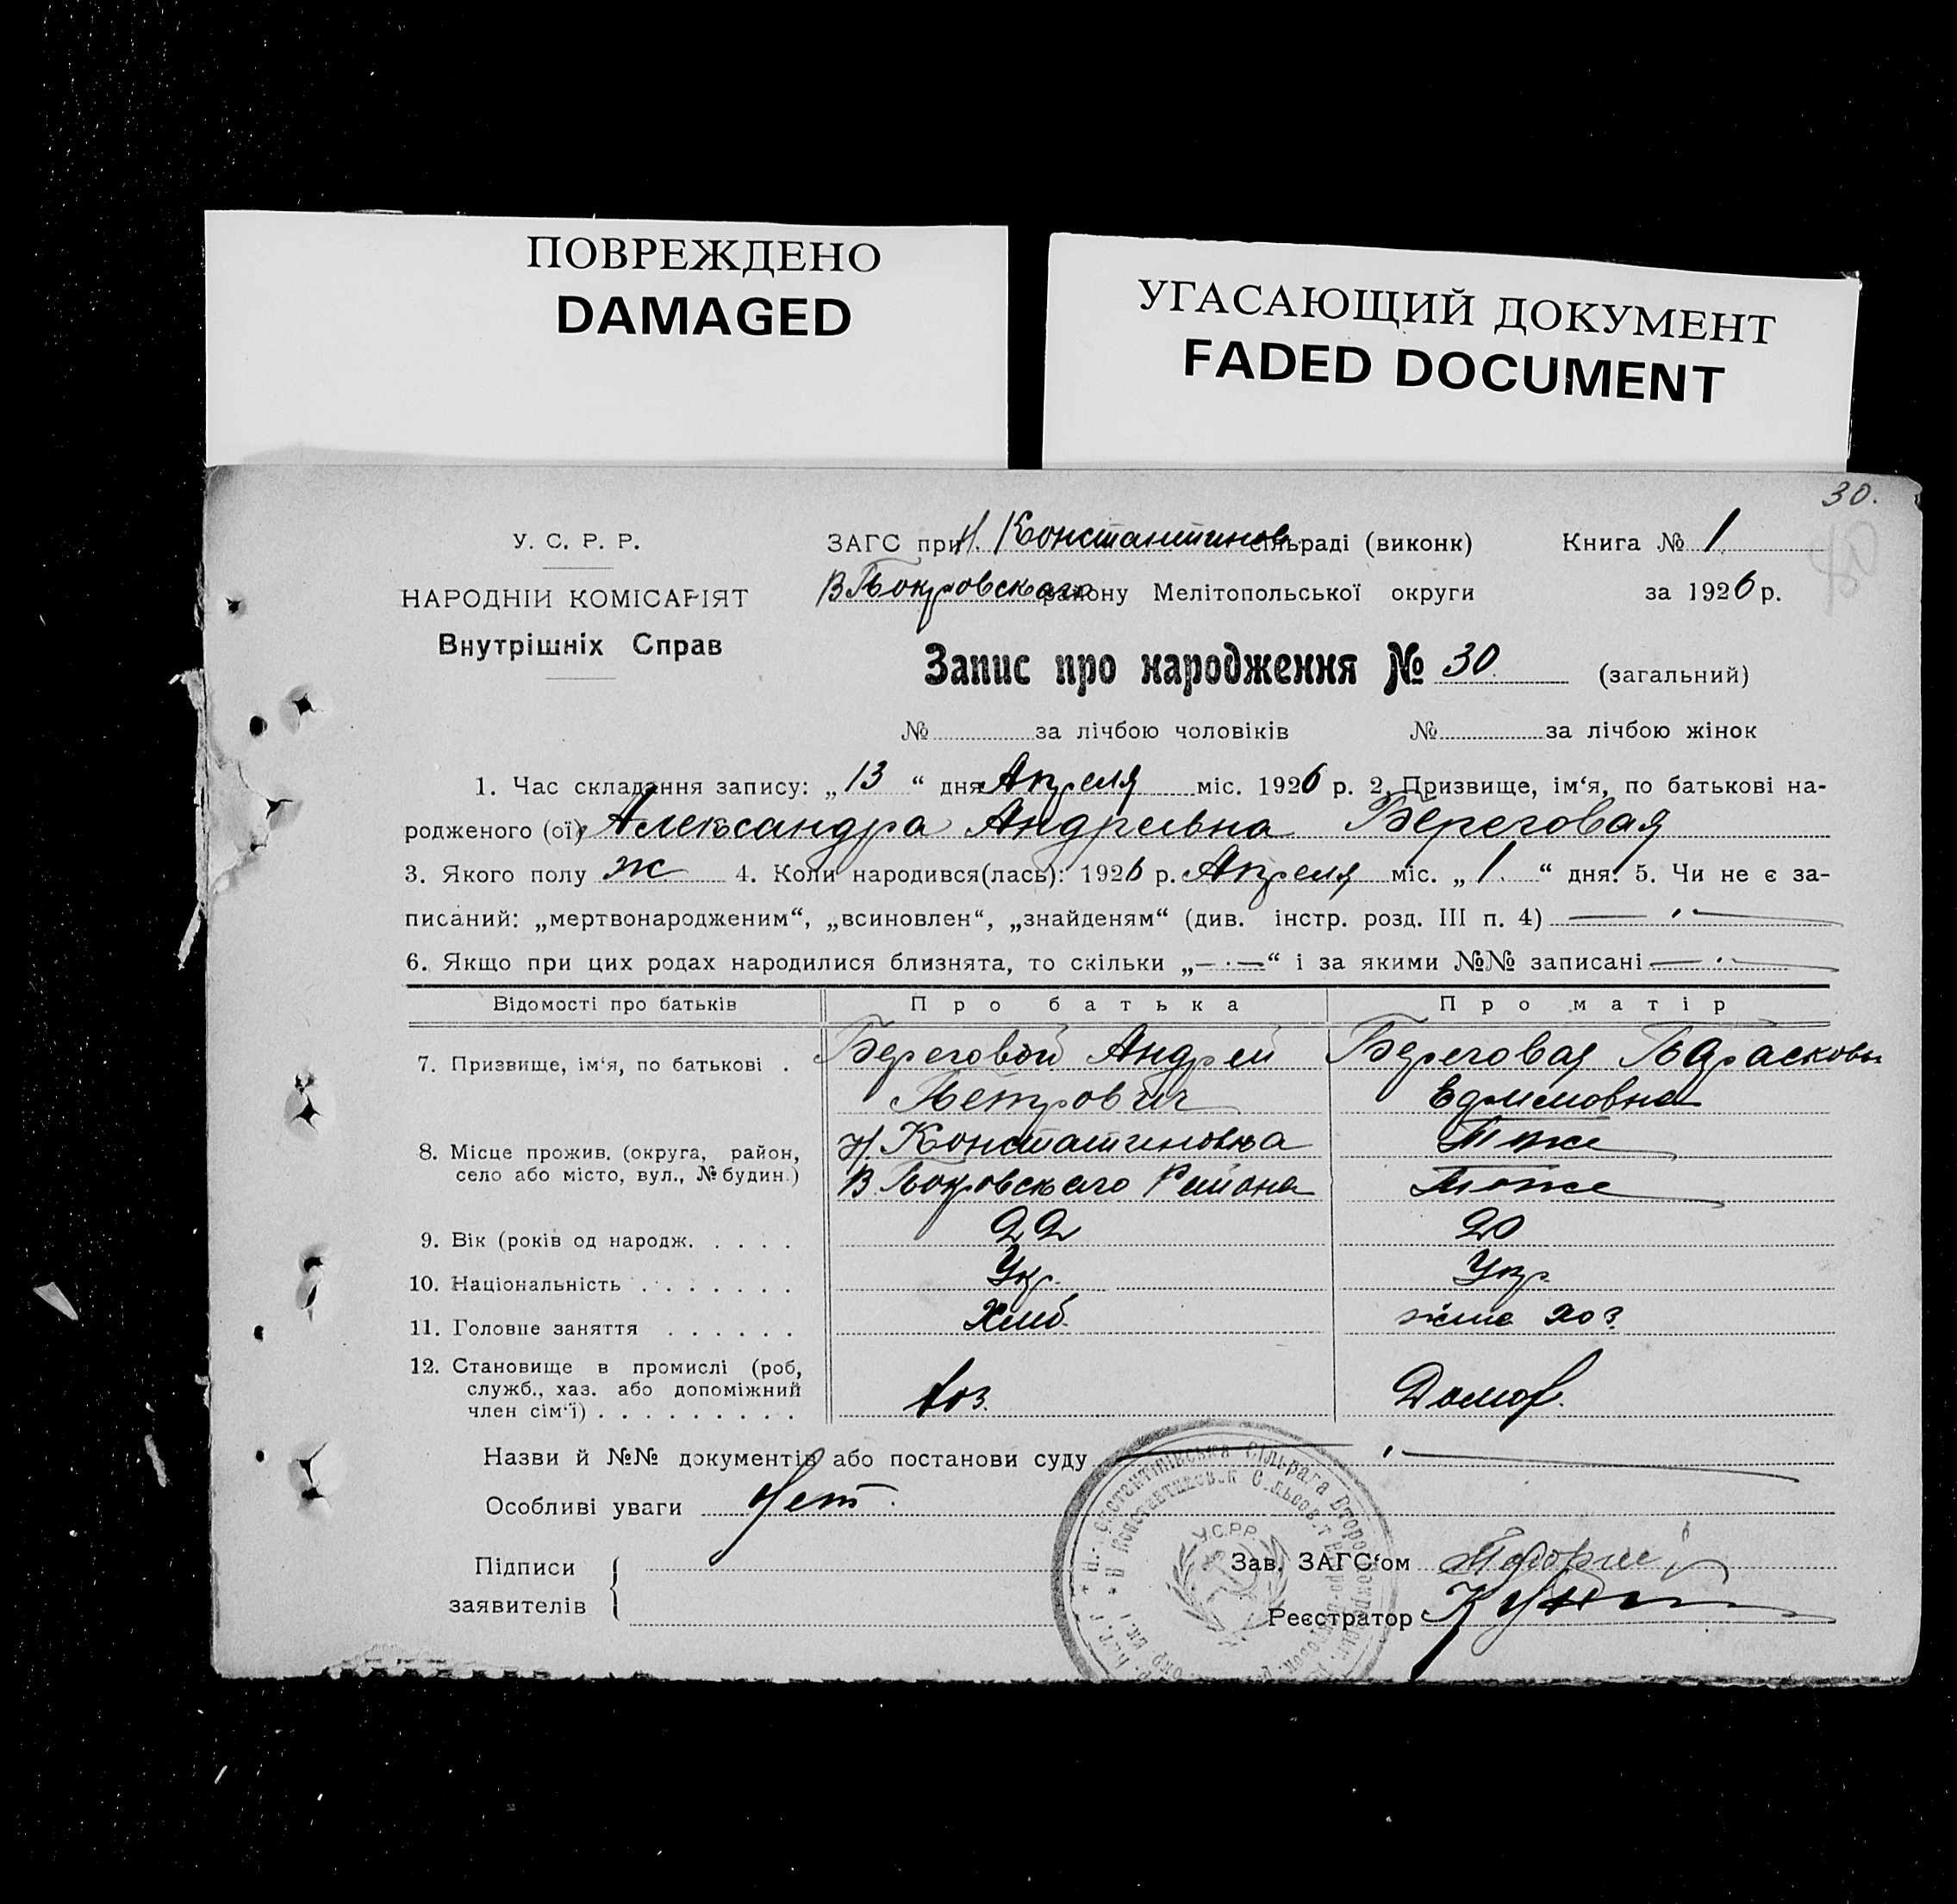 ПОВРЕЖДЕНО
DAMAGED
УГАСАЮЩИЙ ДОКУМЕНТ
FADED DOCUMENT
30.
У. С. Р. Р.
НАРОДНІЙ КОМІСАРІЯТ
Внутрішніх Справ
ЗАГС при Н. Константинов. сільраді (виконк) Книга № 1
В Покровскаго району Мелітопольської округи за 1926 р.
Запис про народження № 30. (загальний)
№ за лічбою чоловіків № за лічбою жінок
1. Час складання запису: „13“ дня Апреля міс. 1926 р. 2. Призвище, ім‘я, по батькові на-
родженого (ої) Александра Андреевна Береговая
3. Якого полу ж 4. Коли народився(лась): 1926 р. Апреля міс. „1.“ дня. 5. Чи не є за-
писаний: „мертвонародженим“, „всиновлен“, „знайденям“ (див. інстр. розд. III п. 4) — . —
6. Якщо при цих родах народилися близнята, то скільки „— . —“ і за якими №№ записані — . —
Відомості про батьків Про батька Про матір
7. Призвище, ім‘я, по батькові . Береговой Андрей Береговая Парасковья
Петрович Ефимовна
8. Місце прожив. (округа, район, Н. Константиновка Тоже
село або місто, вул., № будин.) В. Покровскаго Района Тоже
9. Вік (років од народж. . . . . 22 20
10. Національність . . . . . . . Укр. Укр.
11. Головне заняття . . . . . . Хлеб.
12. Становище в промислі (роб,
служб., хаз. або допоміжний хоз. Домох.
член сім‘ї) . . . . . . . . .
Назви й №№ документів або постанови суду — . —
Особливі уваги Нет.
Підписи
заявителів
Зав. ЗАГС‘ом
Реєстратор
У.С.Р.Р.